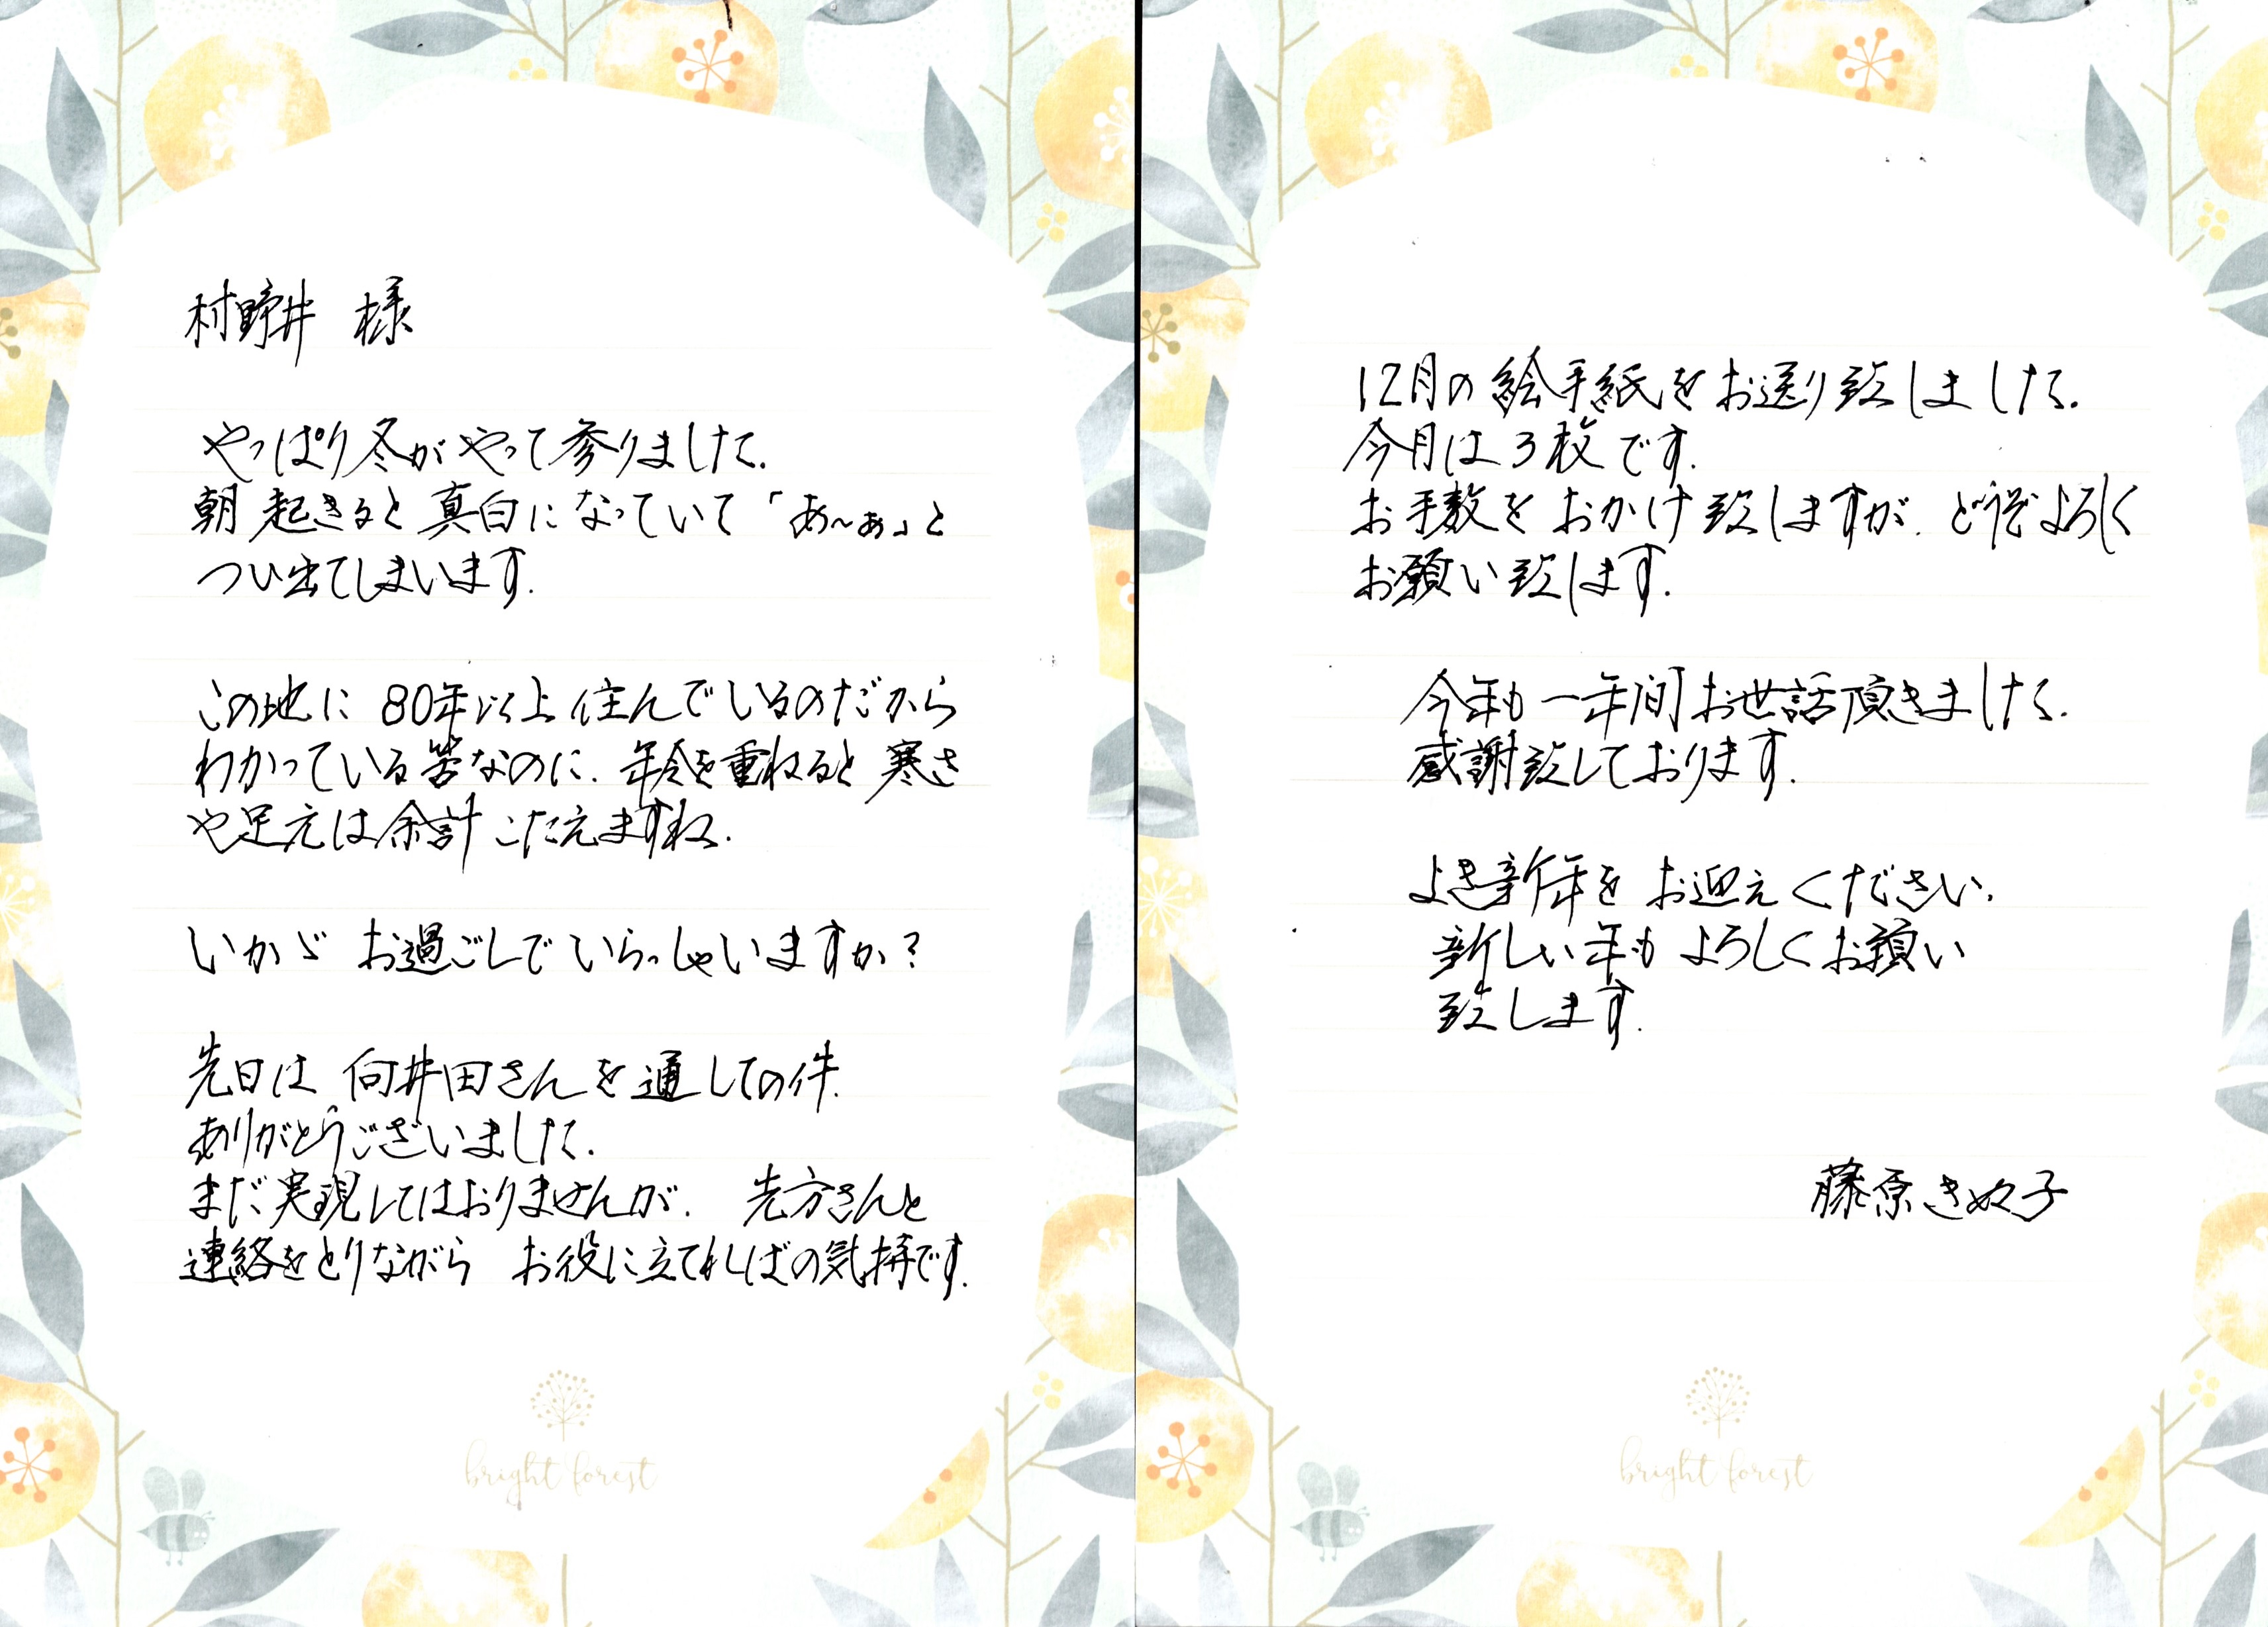 村野井 様
やっぱり冬がやって参りました.
朝起きると真白になっていて「あ〜ぁ」と
つい出てしまいます.
この地に 80年以上住んでいるのだから
わかっている筈なのに. 年令を重ねると寒さ
や足元は余計こたえますね.
いかゞ お過ごしでいらっしゃいますか?
先日は 向井田さんを通しての件.
ありがとうございました.
まだ実現してはおりませんが. 先方さんと
連絡をとりながら お役に立てればの気持です.
bright forest
12月の絵手紙をお送り致しました.
今月は3枚です.
お手数をおかけ致しますが. どうぞよろしく
お願い致します.
今年も一年間お世話頂きました.
感謝致しております.
よき新年を お迎えください.
新しい年も よろしくお願い
致します.
藤原きぬ子
bright forest